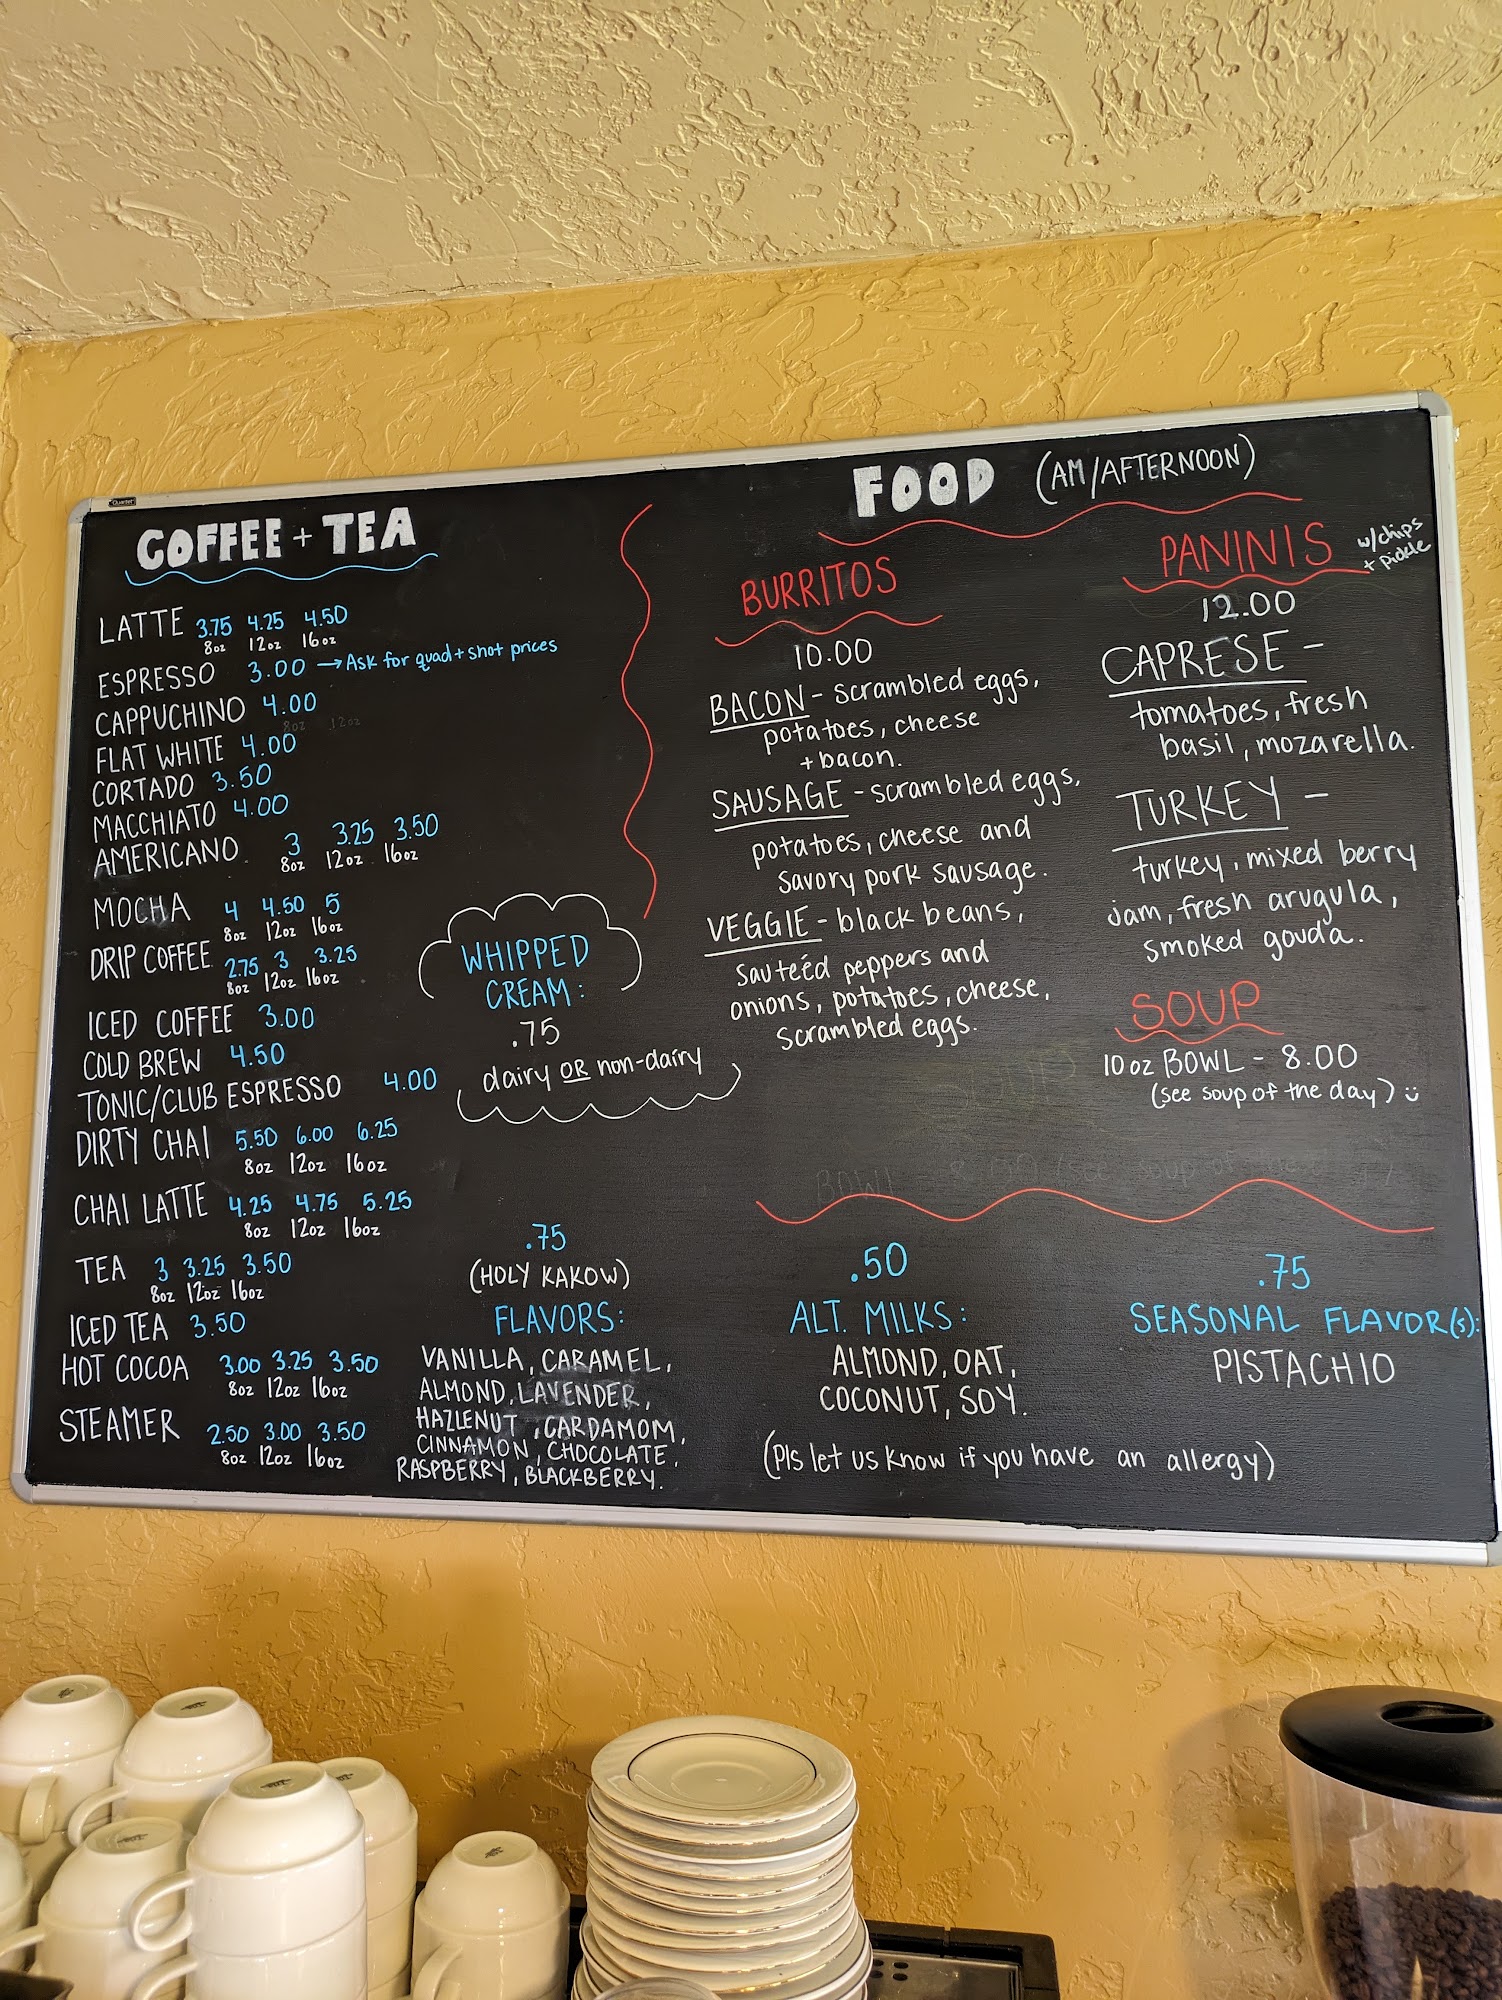 Quartet
COFFEE + TEA
LATTE 3.75 4.25 4.50
8oz 12oz 16oz
ESPRESSO 3.00 → Ask for quad + shot prices
CAPPUCHINO 4.00
8oz 12oz
FLAT WHITE 4.00
CORTADO 3.50
MACCHIATO 4.00
AMERICANO 3 3.25 3.50
8oz 12oz 16oz
MOCHA 4 4.50 5
8oz 12oz 16oz
DRIP COFFEE 2.75 3 3.25
8oz 12oz 16oz
ICED COFFEE 3.00
COLD BREW 4.50
TONIC/CLUB ESPRESSO 4.00
DIRTY CHAI 5.50 6.00 6.25
8oz 12oz 16oz
CHAI LATTE 4.25 4.75 5.25
8oz 12oz 16oz
TEA 3 3.25 3.50
8oz 12oz 16oz
ICED TEA 3.50
HOT COCOA 3.00 3.25 3.50
8oz 12oz 16oz
STEAMER 2.50 3.00 3.50
8oz 12oz 16oz
WHIPPED
CREAM:
.75
dairy OR non-dairy
.75
(HOLY KAKOW)
FLAVORS:
VANILLA, CARAMEL,
ALMOND, LAVENDER,
HAZLENUT, CARDAMOM,
CINNAMON, CHOCOLATE,
RASPBERRY, BLACKBERRY.
FOOD (AM/AFTERNOON)
BURRITOS
10.00
BACON - scrambled eggs,
potatoes, cheese
+ bacon.
SAUSAGE - scrambled eggs,
potatoes, cheese and
savory pork sausage.
VEGGIE - black beans,
sauteéd peppers and
onions, potatoes, cheese,
scrambled eggs.
PANINIS w/chips
+ pickle
12.00
CAPRESE -
tomatoes, fresh
basil, mozarella.
TURKEY -
turkey, mixed berry
jam, fresh arugula,
smoked gouda.
SOUP
10oz BOWL - 8.00
(see soup of the day) ☺
.50
ALT. MILKS:
ALMOND, OAT,
COCONUT, SOY.
.75
SEASONAL FLAVOR(s):
PISTACHIO
(Pls let us know if you have an allergy)